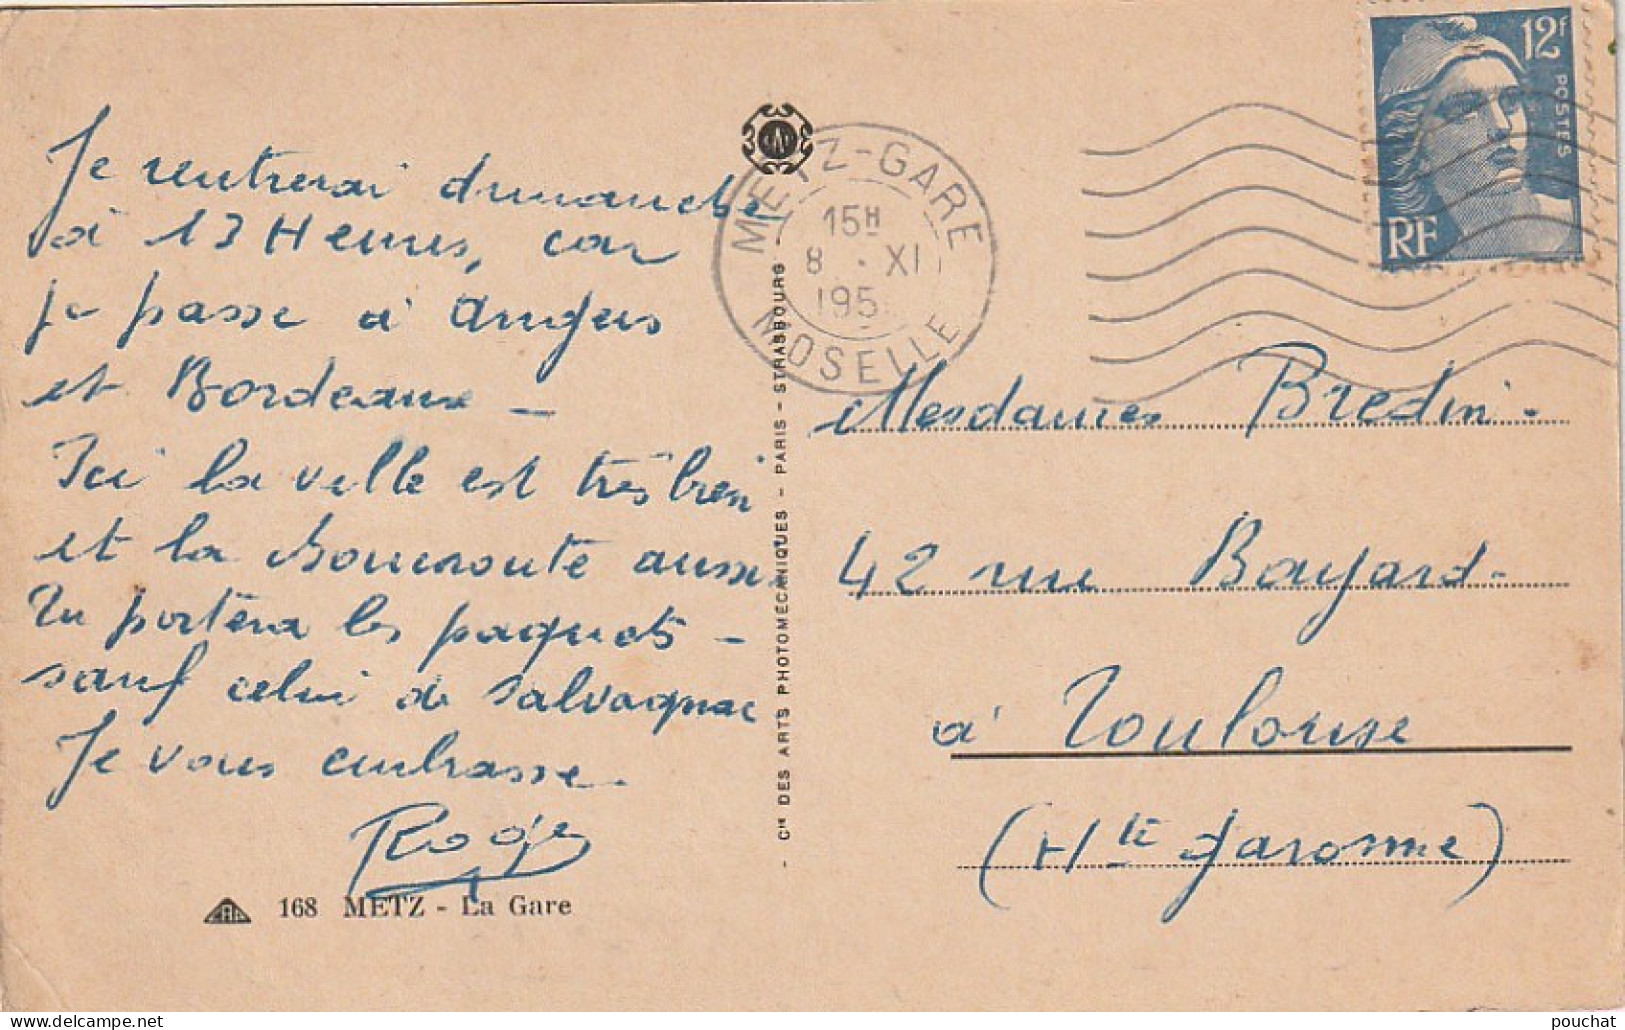 Je rentrerai dimanche
à 13 Heures, car
je passe à Angers
et Bordeaux -
Ici la ville est très bien
et la choucroute aussi
Tu portera les paquets -
sauf celui de Salvagnac
Je vous embrasse.
Roger
168 METZ - La Gare
- Cie DES ARTS PHOTOMÉCANIQUES - PARIS - STRASBOURG -
METZ-GARE
15H
8 · XI
195
MOSELLE
12F
POSTES
RF
Mesdames Bredin -
42 rue Bayard -
à Toulouse
(Hte Garonne)
pouchat